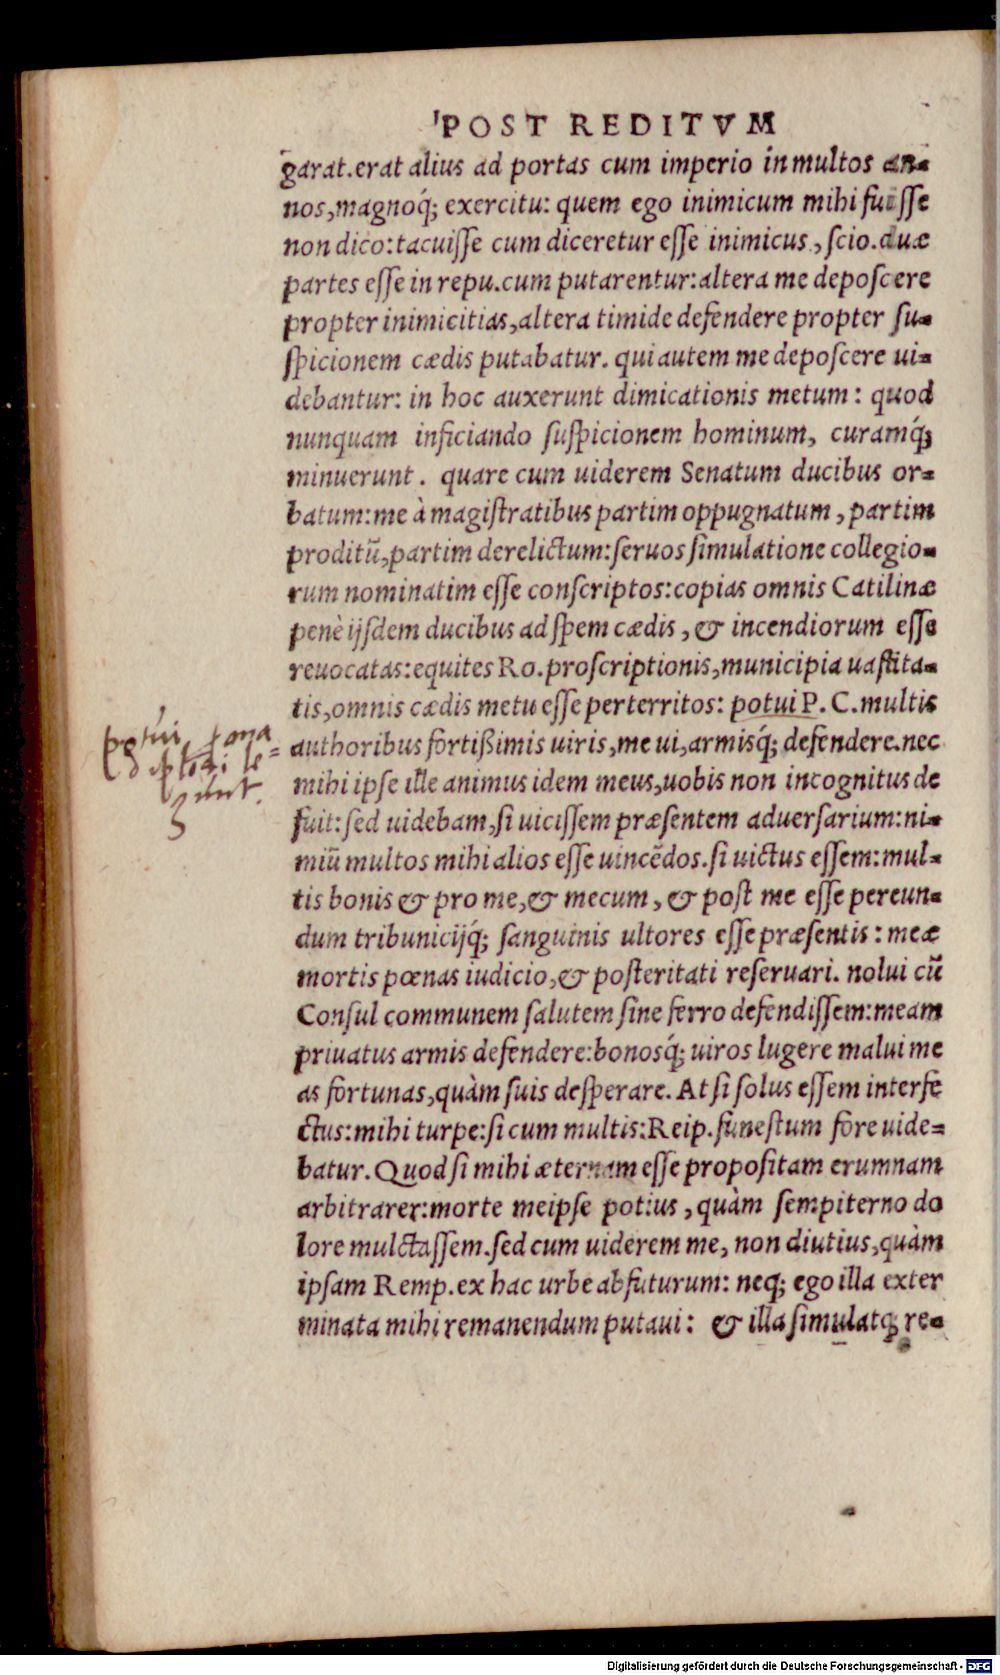 POST REDITVM
garat.erat alius ad portas cum imperio in multos an-
nos,magnoq́; exercitu: quem ego inimicum mihi fuisse
non dico:tacuisse cum diceretur esse inimicus, scio.duæ
partes esse in repu.cum putarentur:altera me deposcere
propter inimicitias,altera timide defendere propter su-
spicionem cædis putabatur. qui autem me deposcere ui-
debantur: in hoc auxerunt dimicationis metum: quod
nunquam inficiando suspicionem hominum, curamq́;
minuerunt. quare cum uiderem Senatum ducibus or-
batum:me à magistratibus partim oppugnatum, partim
proditũ,partim derelictum:seruos simulatione collegio-
rum nominatim esse conscriptos:copias omnis Catilinæ
penè ijsdem ducibus ad spem cædis, & incendiorum esse
reuocatas:equites Ro.proscriptionis,municipia uastita-
tis,omnis cædis metu esse perterritos: potui P. C. multis
potui
authoribus fortißimis uiris,me ui,armisq́; defendere.nec
mihi ipse ille animus idem meus,uobis non incognitus de
fuit:sed uidebam,si uicissem præsentem aduersarium:ni-
miũ multos mihi alios esse uincẽdos.si uictus essem:mul-
tis bonis & pro me,& mecum, & post me esse pereun-
dum tribunicijq́; sanguinis ultores esse præsentis: meæ
mortis pœnas iudicio,& posteritati reseruari. nolui cũ
Consul communem salutem sine ferro defendissem:meam
priuatus armis defendere:bonosq́; uiros lugere malui me
as fortunas,quàm suis desperare. At si solus essem interfe
ctus:mihi turpe:si cum multis:Reip.funestum fore uide-
batur.Quod si mihi æternam esse propositam erumnam
arbitrarer:morte meipse potius, quàm sempiterno do
lore mulctassem.sed cum uiderem me, non diutius,quàm
ipsam Remp.ex hac urbe abfuturum: neq; ego illa exter
minata mihi remanendum putaui: & illa simulatq; re-
Digitalisierung gefördert durch die Deutsche Forschungsgemeinschaft - DFG